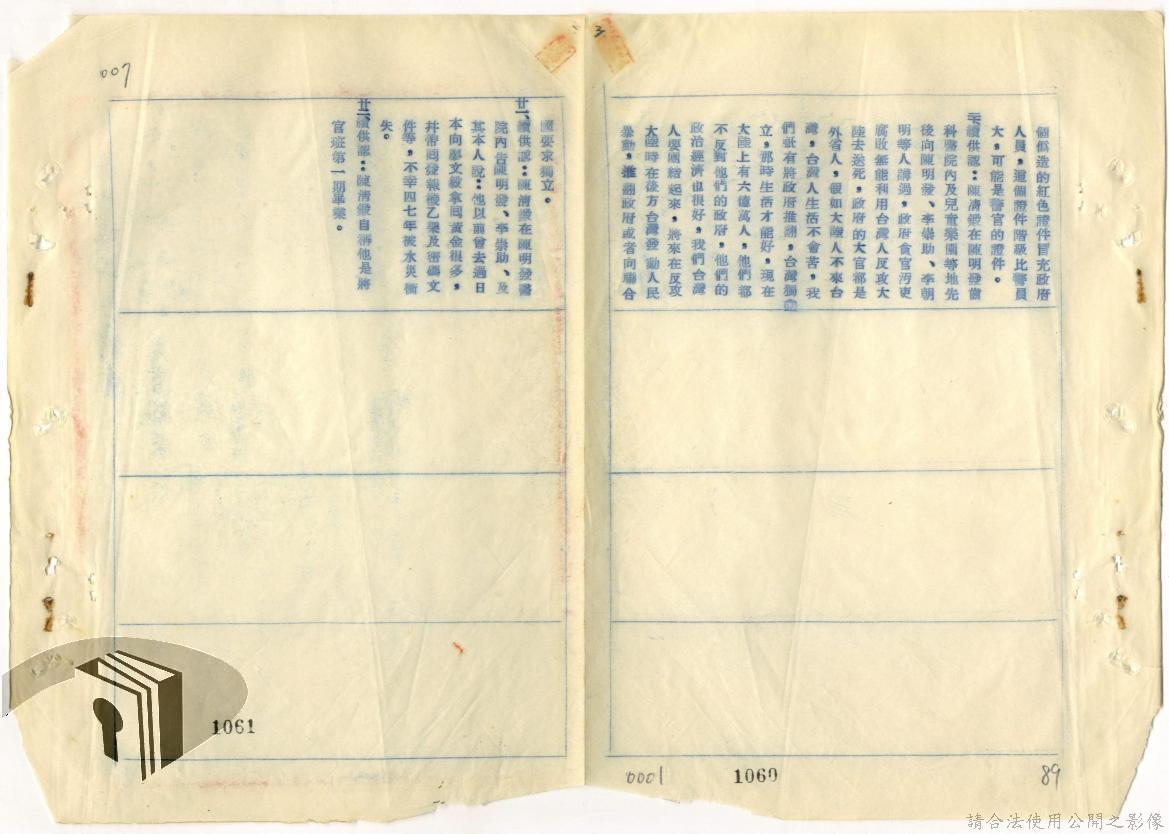 個偽造的紅色證件冒充政府
人員，這個證件階級比警員
大，可能是警官的證件。
二十、續供認：陳清鍛在陳明發齒
科醫院內及兒童樂園等地先
後向陳明發、李崇助、李朝
明等人講過，政府貪官污吏
腐敗無能利用台灣人反攻大
陸去送死，政府的大官都是
外省人，假如大陸人不來台
灣，台灣人生活不會苦，我
們祇有將政府推翻，台灣獨
立，那時生活才能好，現在
大陸上有六億萬人，他們都
不反對他們的政府，他們的
政治經濟也很好，我們台灣
人要團結起來，將來在反攻
大陸時在後方台灣發動人民
暴動，推翻政府或者向聯合
國要求獨立。
廿一、續供認：陳清鍛在陳明發醫
院內告陳明發、李崇助、及
其本人說：他以前曾去過日
本向廖文毅拿回黃金很多，
并帶回發報機乙架及密碼文
件等，不幸四七年被水災衝
失。
廿二、續供認：陳清鍛自稱他是將
官班第一期畢業。
007
1061
0001
1060
89
請合法使用公開之影像